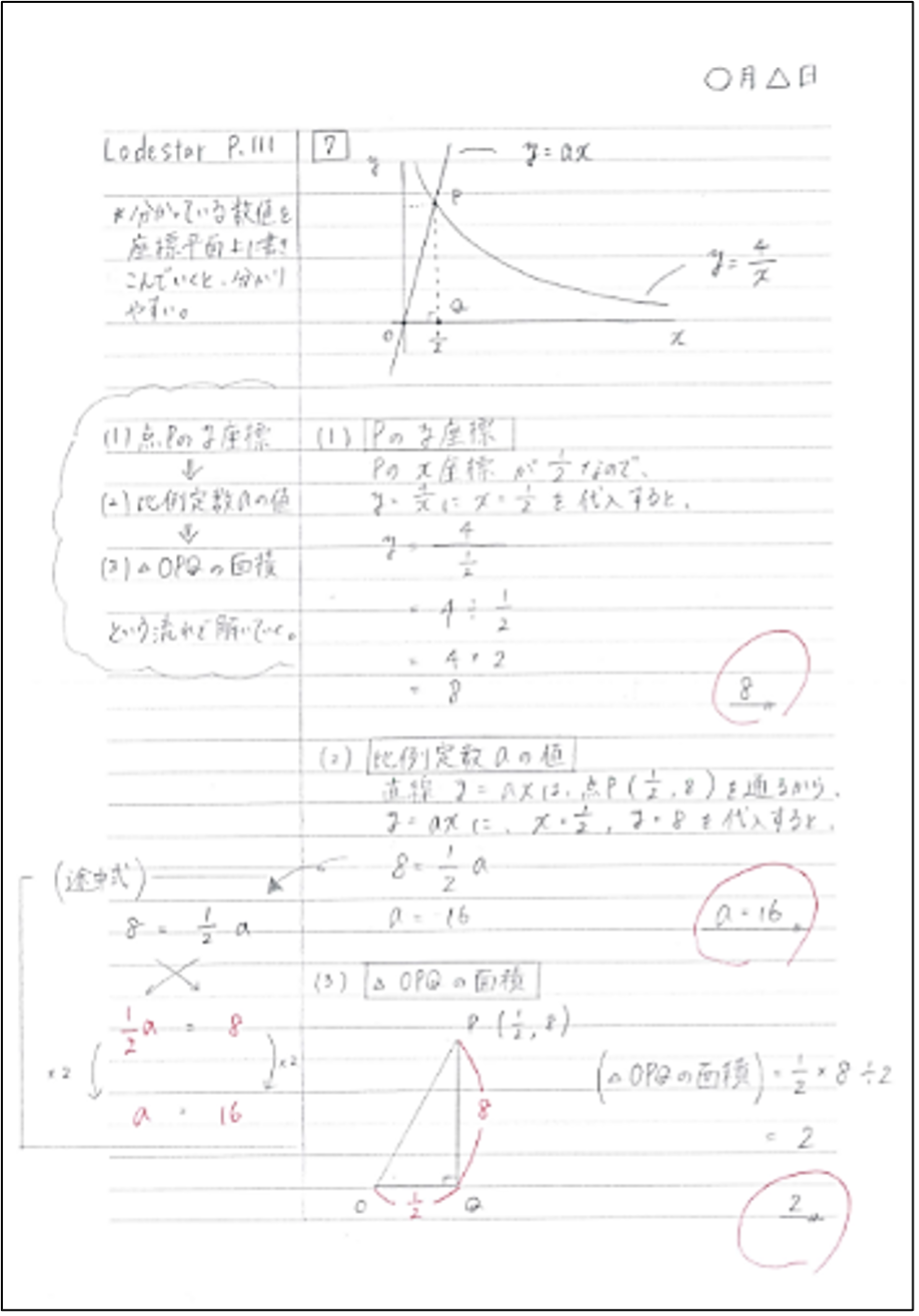 ○月△日
Lodestar P.111
*分かっている数値を
座標平面上に書き
こんでいくと、分かり
やすい。
7
y
y=ax
P
y=4/x
Q
O
1/2
x
(1)点Pのy座標
⇓
(2)比例定数aの値
⇓
(3)△OPQの面積
という流れで解いていく。
(1) Pのy座標
Pのx座標が1/2なので、
y=4/xにx=1/2を代入すると、
y=4/(1/2)
=4÷1/2
=4×2
=8
8
(2) 比例定数aの値
直線y=axは、点P(1/2,8)を通るから、
y=axに、x=1/2,y=8を代入すると、
8=1/2a
a=16
a=16
(途中式)
8=1/2a
1/2a=8
×2
×2
a=16
(3) △OPQの面積
8(1/2,8)
8
O
1/2
Q
(△OPQの面積)=1/2×8÷2
=2
2